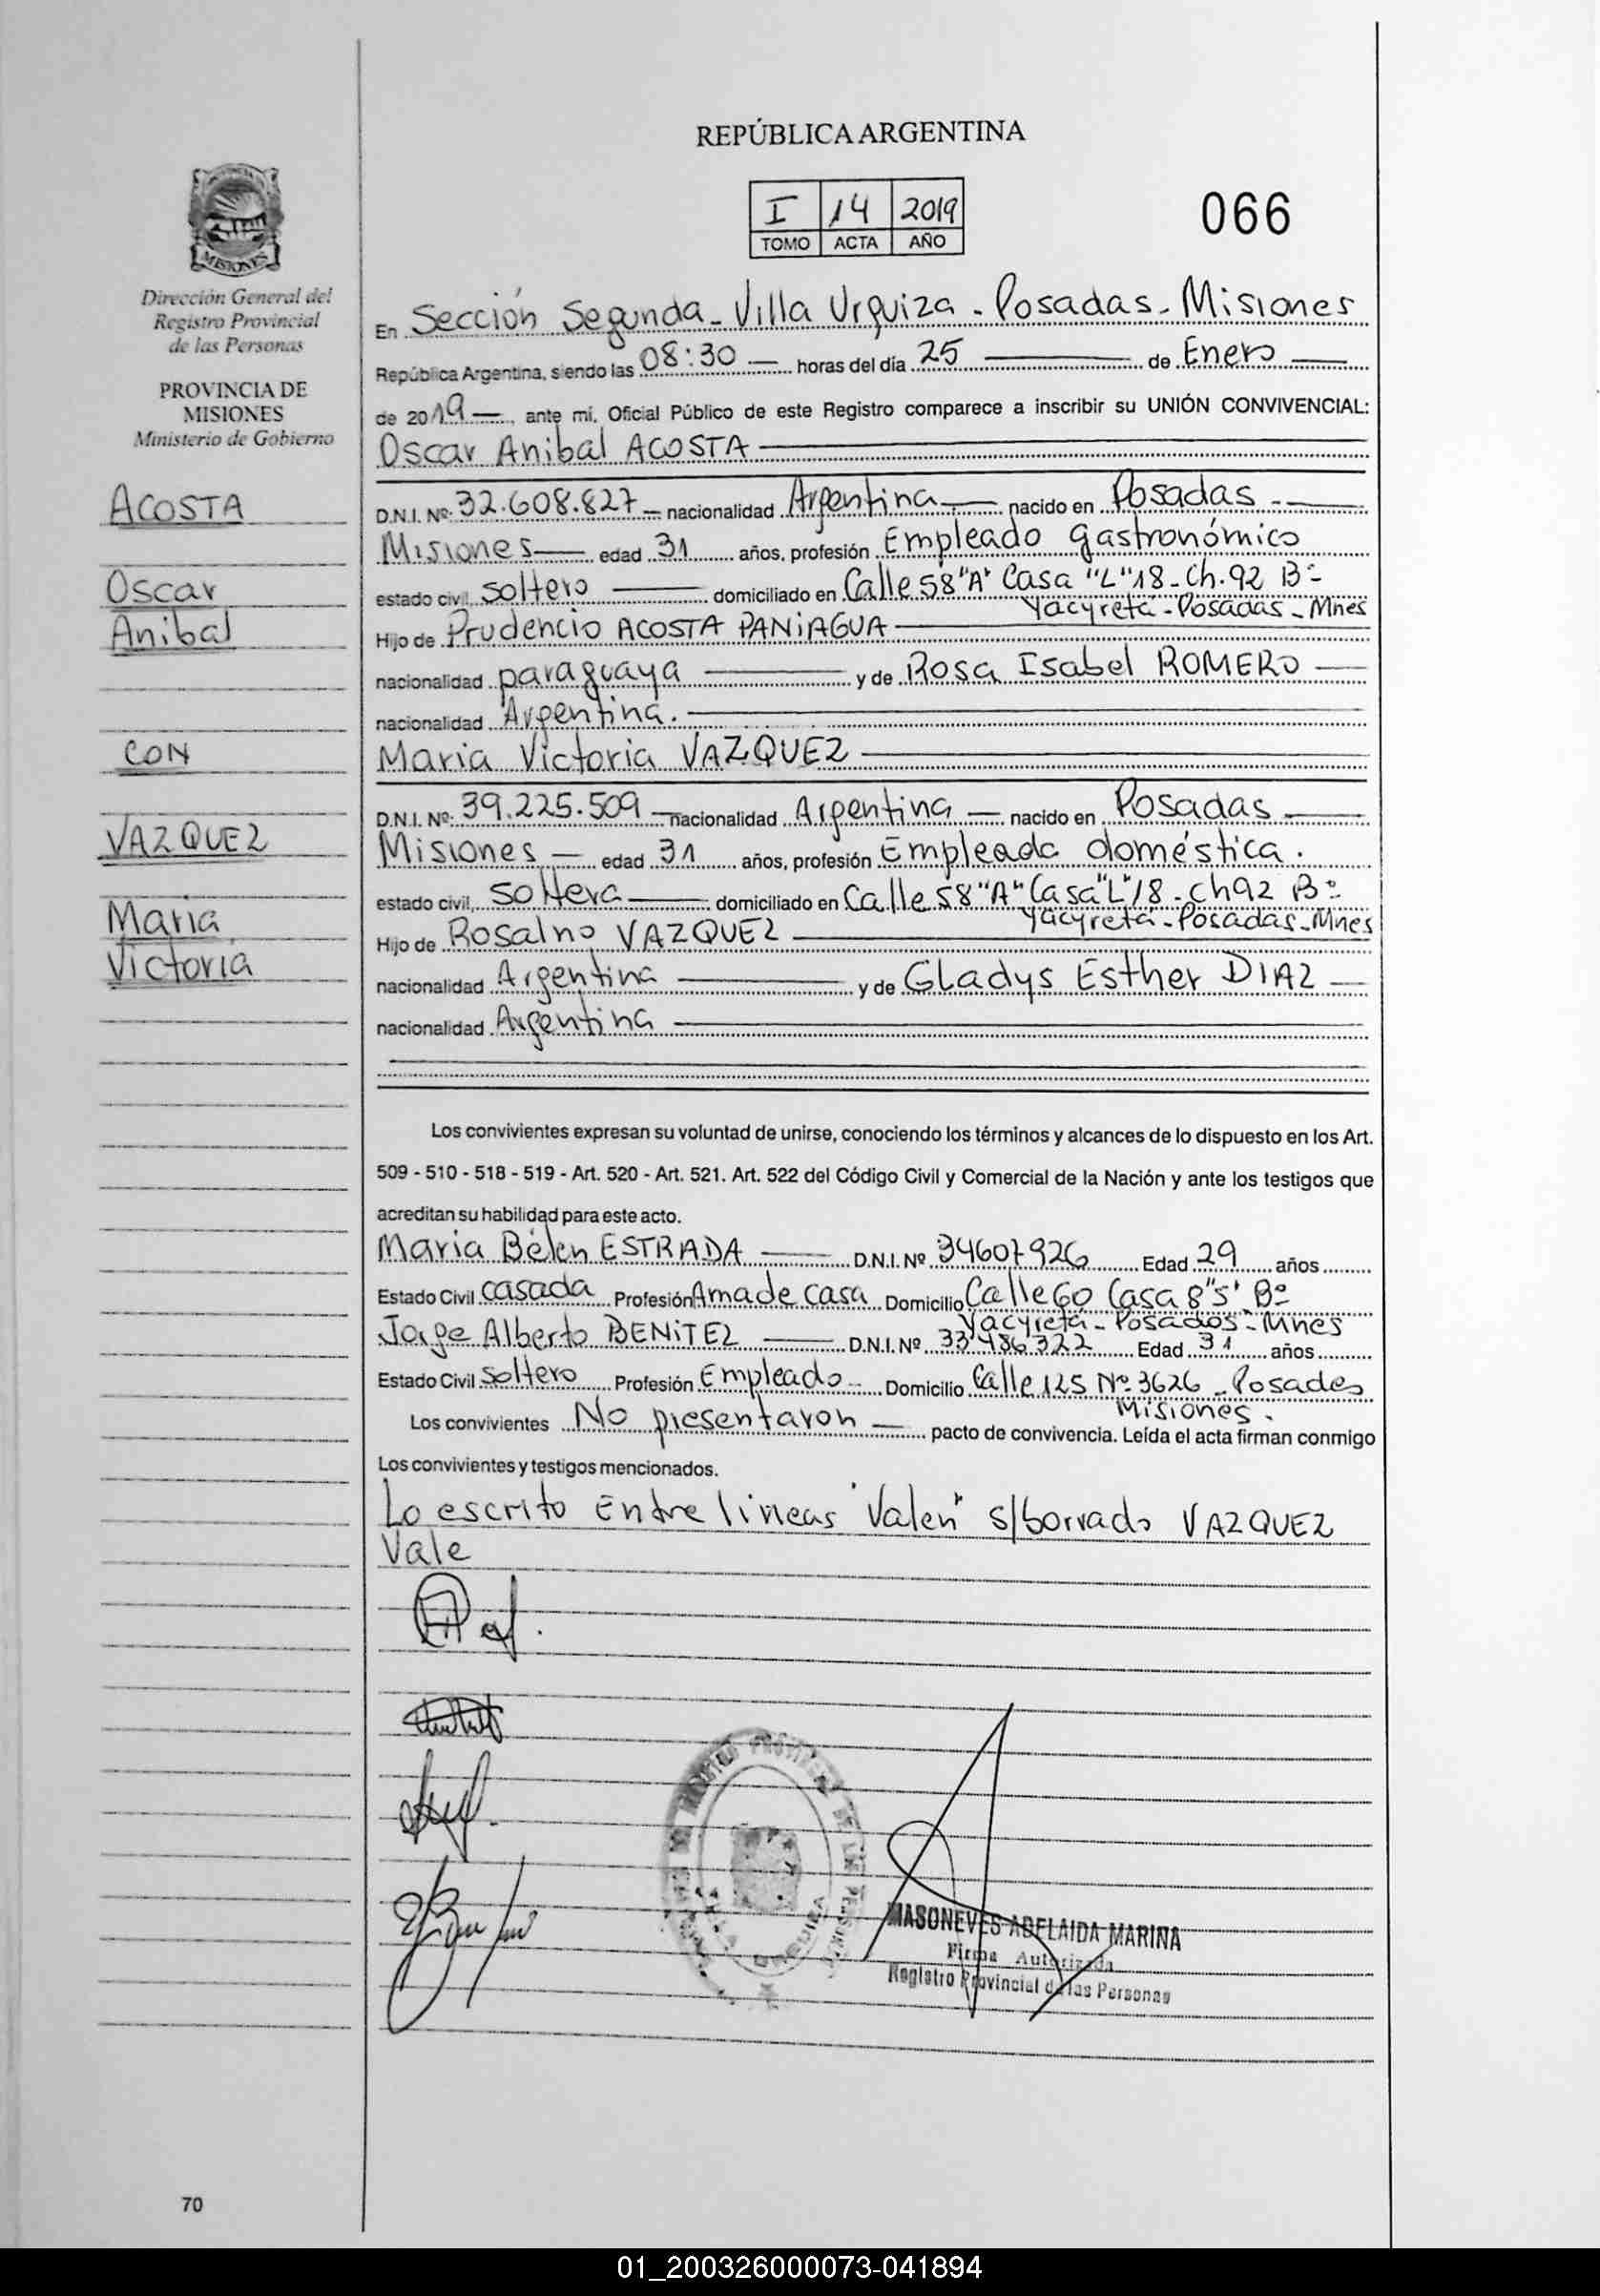 REPÚBLICA ARGENTINA
I 14 2019
TOMO ACTA AÑO
066
MISIONES
Dirección General del
Registro Provincial
de las Personas
PROVINCIA DE
MISIONES
Ministerio de Gobierno
ACOSTA
Oscar
Anibal
CON
VAZQUEZ
Maria
Victoria
En Sección Segunda - Villa Urquiza - Posadas - Misiones
República Argentina, siendo las 08:30 horas del día 25 de Enero
de 2019, ante mi, Oficial Público de este Registro comparece a inscribir su UNIÓN CONVIVENCIAL:
Oscar Anibal ACOSTA
D.N.I. Nº: 32.608.827 nacionalidad Argentina nacido en Posadas -
Misiones edad 31 años, profesión Empleado gastronómico
estado civil, soltero domiciliado en Calle 58 "A" Casa "L" 18 - Ch. 92 Bº
Yacyretá - Posadas - Mnes
Hijo de Prudencio ACOSTA PANIAGUA
nacionalidad paraguaya y de Rosa Isabel ROMERO
nacionalidad Argentina.
Maria Victoria VAZQUEZ
D.N.I. Nº: 39.225.509 nacionalidad Argentina nacido en Posadas
Misiones edad 31 años, profesión Empleada doméstica.
estado civil, soltera domiciliado en Calle 58 "A" Casa "L" 18 - ch 92 Bº
Yacyretá - Posadas - Mnes
Hijo de Rosalno VAZQUEZ
nacionalidad Argentina y de Gladys Esther DIAZ
nacionalidad Argentina
Los convivientes expresan su voluntad de unirse, conociendo los términos y alcances de lo dispuesto en los Art.
509 - 510 - 518 - 519 - Art. 520 - Art. 521. Art. 522 del Código Civil y Comercial de la Nación y ante los testigos que
acreditan su habilidad para este acto.
Maria Belen ESTRADA D.N.I. Nº 34607926 Edad 29 años
Estado Civil casada Profesión Ama de casa Domicilio Calle 60 Casa 8 "S" Bº
Yacyretá - Posadas - Mnes
Jorge Alberto BENITEZ D.N.I. Nº 33486322 Edad 31 años
Estado Civil soltero Profesión Empleado Domicilio Calle 125 Nº 3626 - Posadas
Misiones.
Los convivientes No presentaron pacto de convivencia. Leída el acta firman conmigo
Los convivientes y testigos mencionados.
Lo escrito Entre lineas "Valen" s/borrado VAZQUEZ
Vale
MASONEVES ADELAIDA MARINA
Firma Autorizada
Registro Provincial de las Personas
70
01_200326000073-041894